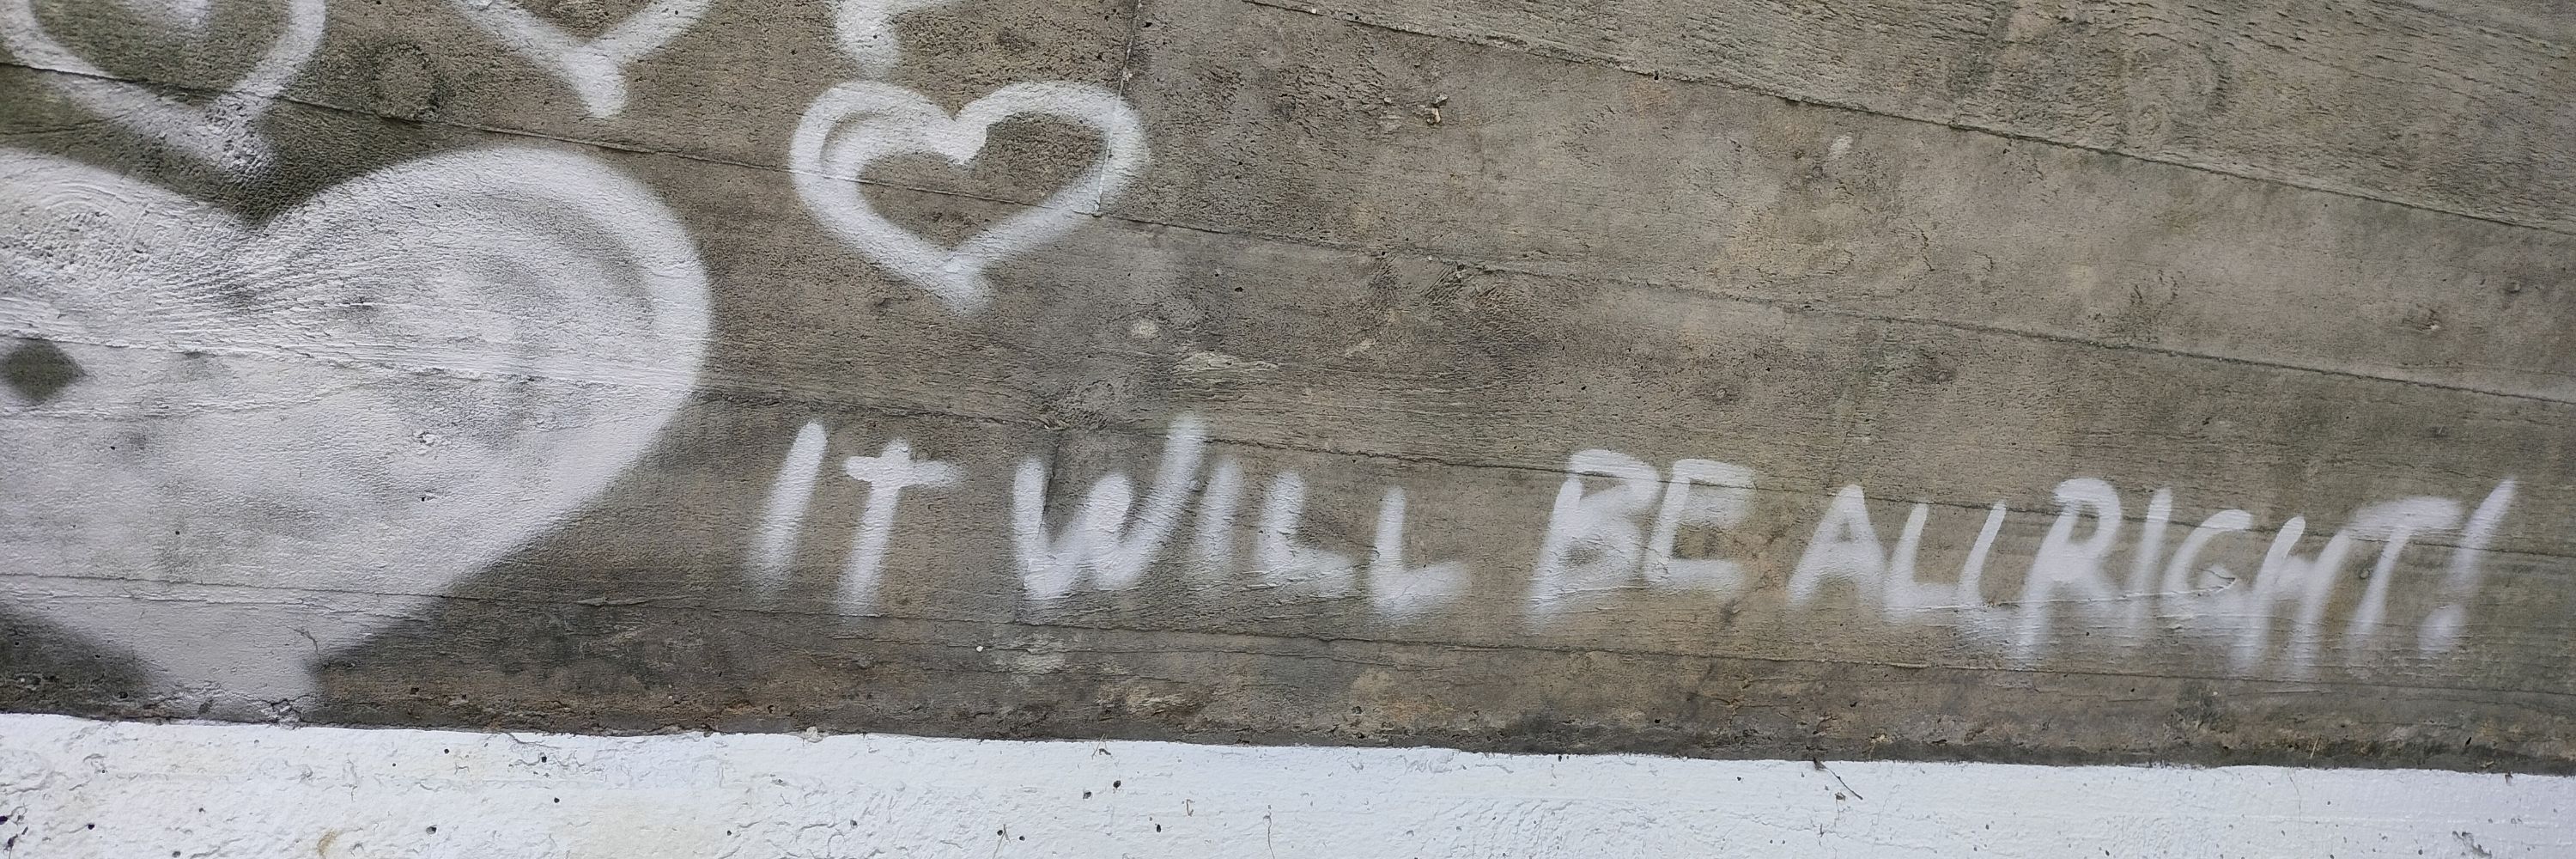 IT WILL BE ALLRIGHT!